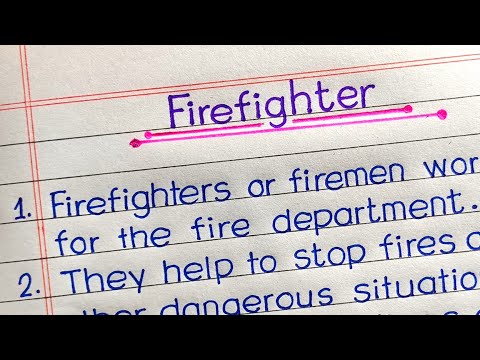 Firefighter
1. Firefighters or firemen wor
for the fire department.
2. They help to stop fires
dangerous situatio